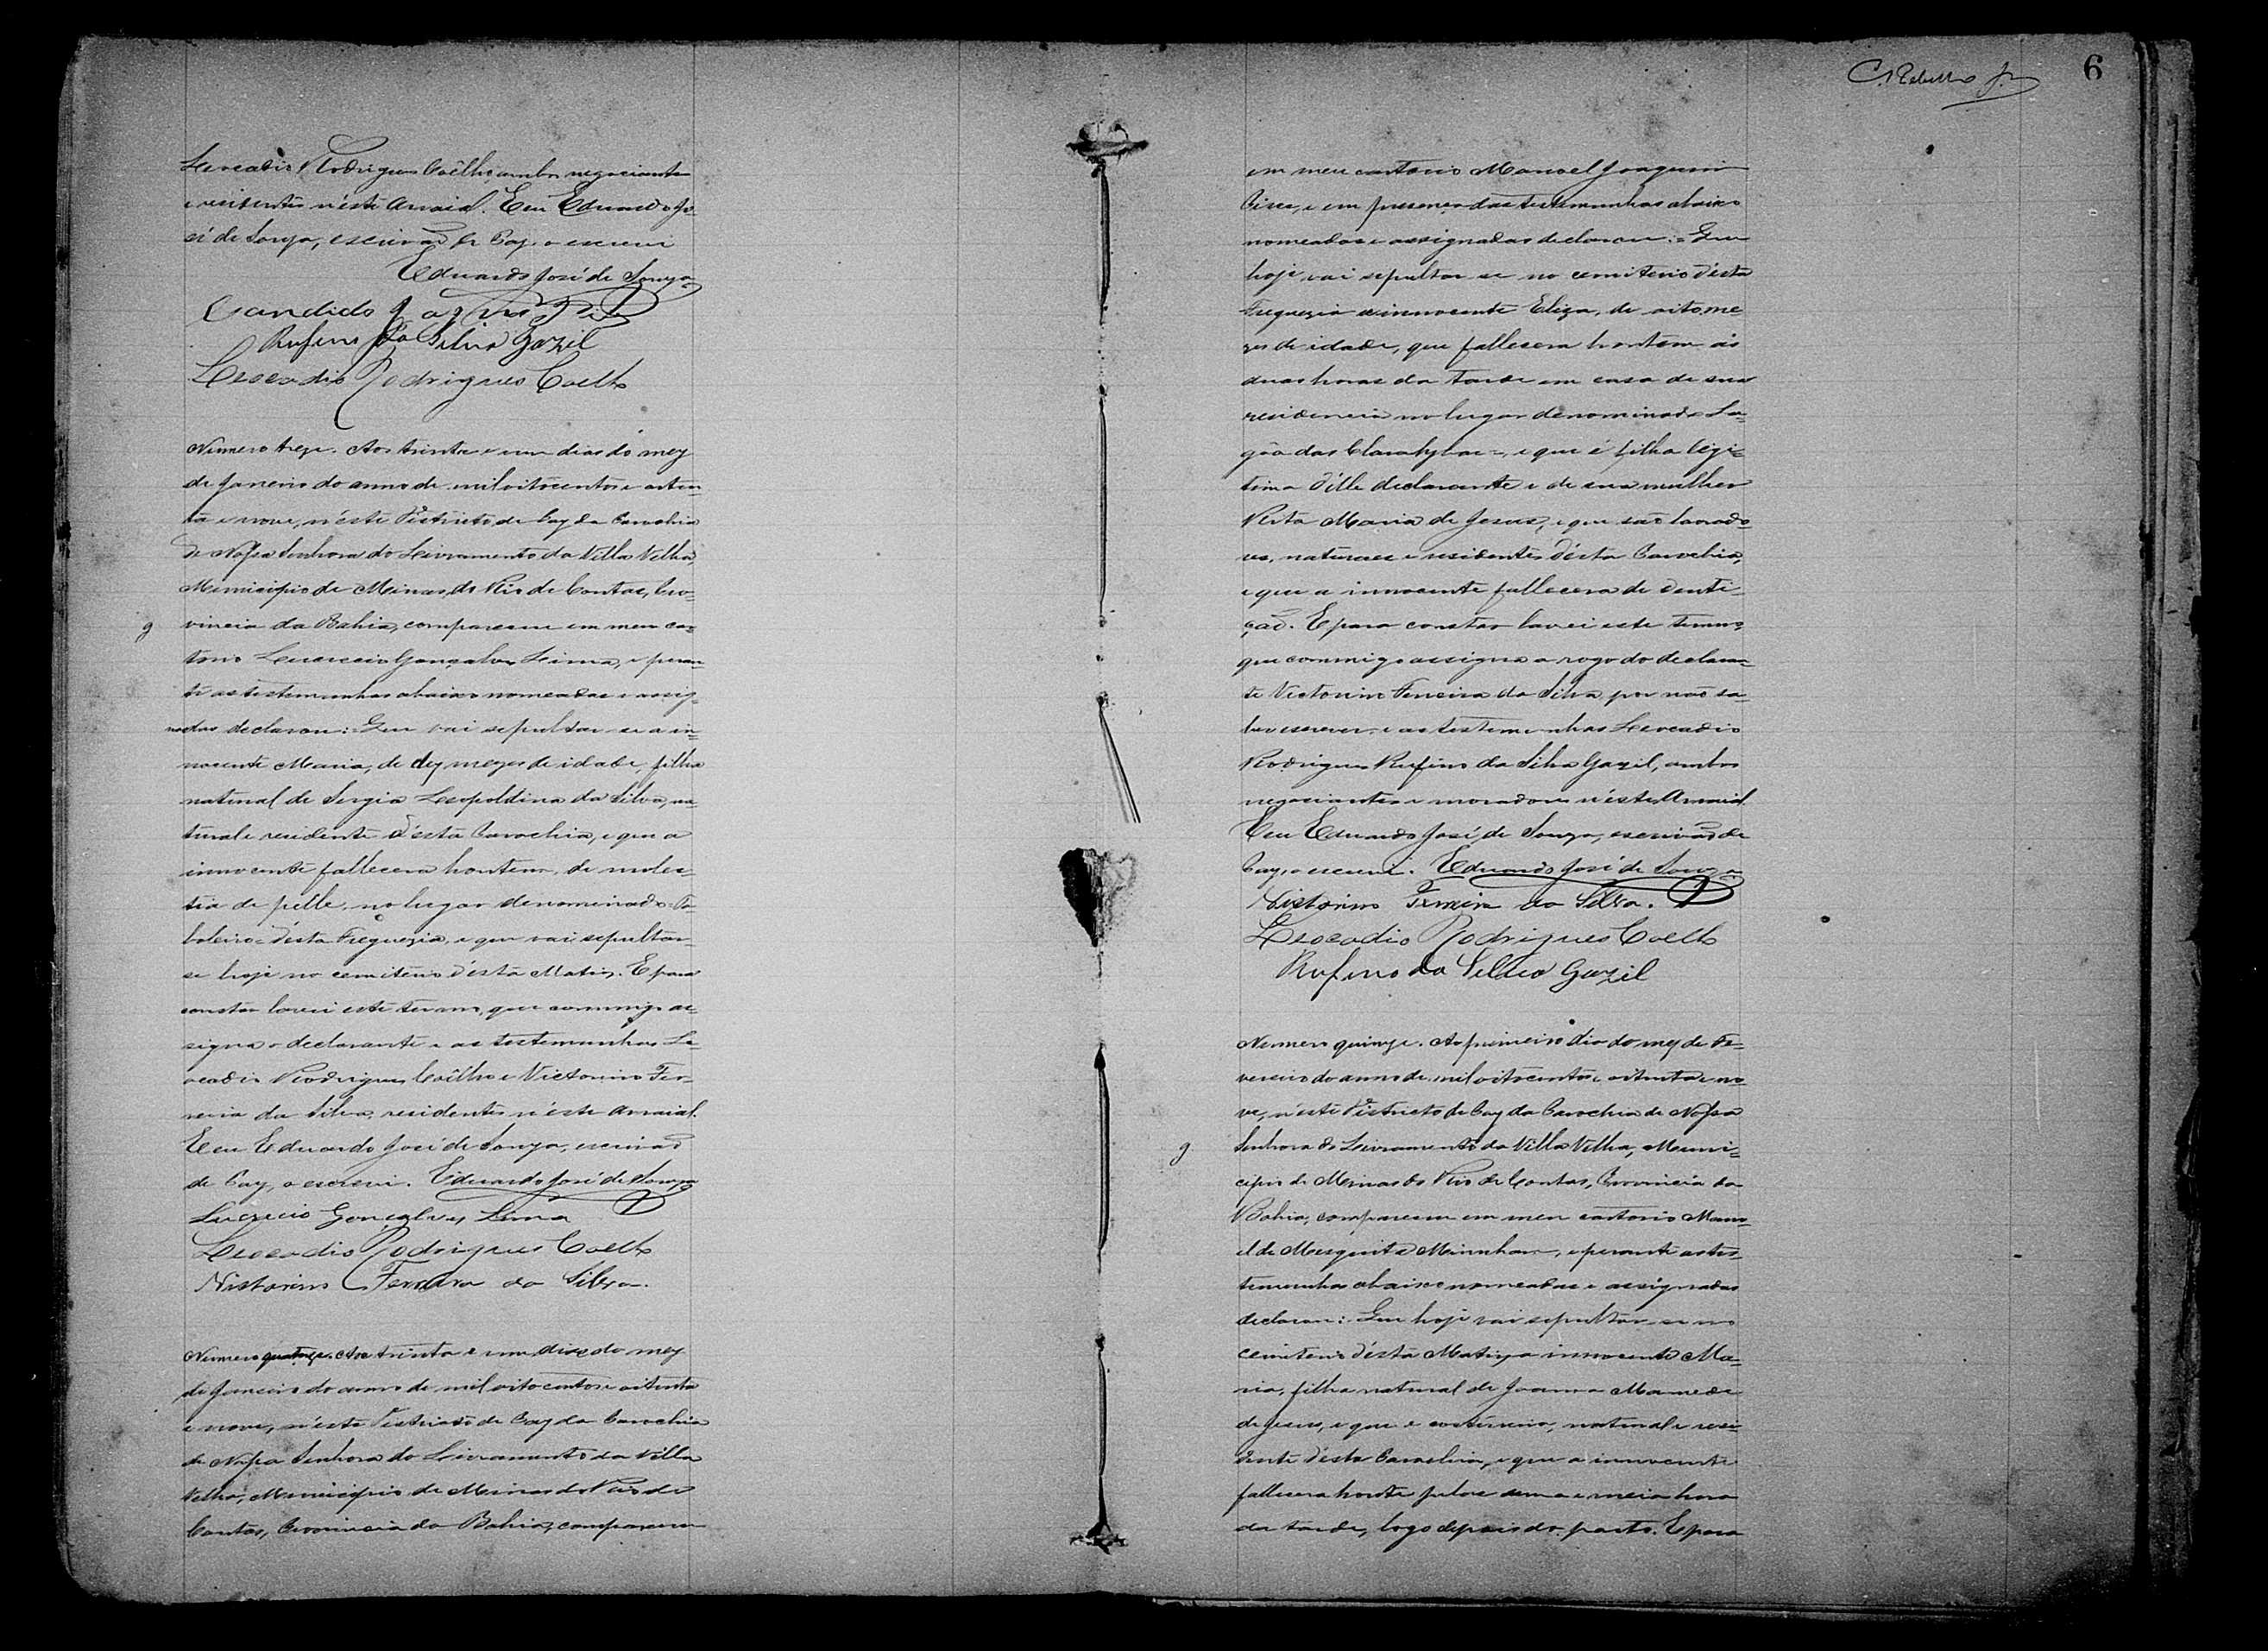 Leocadio Rodrigues Coêlho, ambos negociantes
e residentes n'este Arraial. Eu Eduardo Jo-
sé de Souza, escrivão de Paz o escrevi
Eduardo José de Souza
Candido
Rufino da Silva Gazil
Leocadio Rodrigues Coelho
Numero treze. Aos trinta e um dias do mez
de Janeiro do anno de mil oitocentos e oiten-
ta e nove, n'este Districto de Paz da Parochia
de Nossa Senhora do Livramento da Villa Velha,
Municipio de Minas do Rio de Contas, Pro-
vincia da Bahia, compareceu em meu car-
torio Lucrecio Gonçalves Lima, e peran-
te as testemunhas abaixo nomeadas e assig-
nadas declarou: Que vai sepultar-se a in-
nocente Maria, de dez mezes de idade, filha
natural de Sergia Leopoldina da Silva, na
tural e residente d'esta Parochia, e que a
innocente fallecera hontem, de moles-
tia de pelle, no lugar denominado Ta-
boleiro = d'esta Freguezia, e que vai sepultar-
se hoje no cemiterio d'esta Matriz. E para
constar lavrei este termo, que commigo as-
signa o declarante e as testemunhas Le-
ocadio Rodrigues Coêlho e Victorino Fer-
reira da Silva, residentes n'este Arraial.
Eu Eduardo José de Souza, escrivão
de Paz, o escrevi. Eduardo José de Souza
Lucrecio Gonçalves Lima
Leocadio Rodrigues Coelho
Victorino Ferreira da Silva.
Numero quatorze. Aos trinta e um dias do mez
de Janeiro do anno de mil oitocentos e oitenta
e nove, n'este Districto de Paz da Parochia
de Nossa Senhora do Livramento da Villa
Velha, Municipio de Minas do Rio de
Contas, Provincia da Bahia, compareceu
6
em meu cartorio Manoel Joaquim
e em presença das testemunhas abaixo
nomeadas e assignadas declarou: = Que
hoje vai sepultar-se no cemiterio d'esta
Freguezia a innocente Eliza, de oito me
zes de idade, que fallecera hontem ás
duas horas da tarde em casa de sua
residencia no lugar denominado La-
gôa das e que é filha legi-
tima d'elle declarante e de sua mulher
Rita Maria de Jesus, e que são lavrado-
res, naturaes e residentes d'esta Parochia,
e que a innocente fallecera de denti-
ção. E para constar lavrei este termo,
que commigo assigna a rogo do declaran-
te Victorino Ferreira da Silva, por não sa-
ber escrever, e as testemunhas Leocadio
Rodrigues Rufino da Silva Gazil, ambos
negociantes e moradores n'este Arraial.
Eu Eduardo José de Souza, escrivão de
Paz, o escrevi. Eduardo José de Souza
Victorino Ferreira da Silva.
Leocadio Rodrigues Coelho
Rufino da Silva Gazil
Numero quinze. Ao primeiro dia do mez de Fe-
vereiro do anno de mil oitocentos e oitenta e no
ve, n'este Districto de Paz da Parochia de Nossa
Senhora do Livramento da Villa Velha, Muni-
cipio de Minas do Rio de Contas, Provincia da
Bahia, compareceu em meu cartorio Mano-
el de Mesquita e perante as tes-
temunhas abaixo nomeadas e assignadas
declarou: Que hoje vai sepultar-se no
cemiterio d'esta Matriz a innocente Ma-
ria, filha natural de Joanna Mamede
de Jesus, e que é costureira, natural e resi-
dente d'esta Parochia, e que a innocente
fallecera honte pelas uma e meia hora
da tarde, logo depois do parto. E para